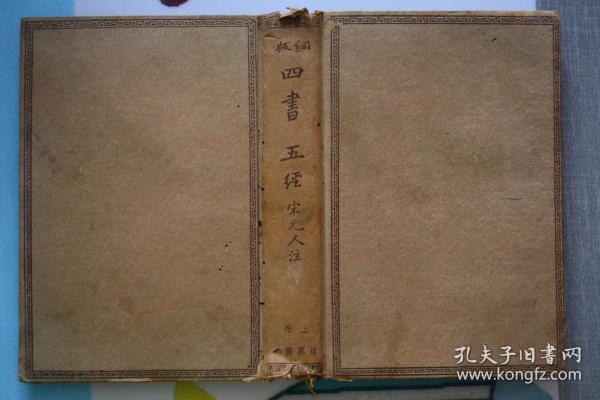 銅版
四書
五經
宋元人注
上冊
世界書局
孔夫子旧书网
www.kongfz.com